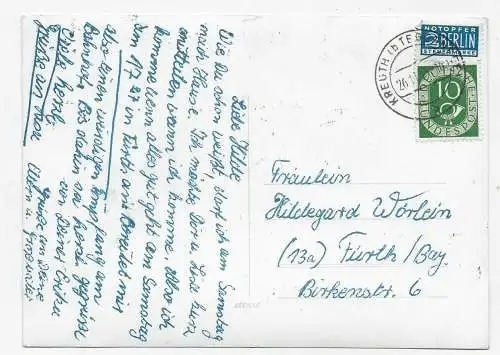 Liebe Hilde
Wie Du schon weißt, darf ich am Samstag
nach Hause. Ich möchte Dir u. Lisl kurz
mitteilen wann ich komme, also ich
komme wenn alles gut geht am Samstag
um 17.27 in Fürth an. Bereitet mir
aber einen würdigen Empfang am
Bahnhof. Bis dahin sei herzl. gegrüßt
von Deiner
Grüße an Deine
Eltern u. Großvater
Grüße an
NOTOPFER
2 BERLIN
STEUERMARKE
KREUTH üb TEG
26.11
10
DEUTSCHE BUNDESPOST
Fräulein
Hildegard Wörlein
(13a) Fürth/Bay.
Birkenstr. 6